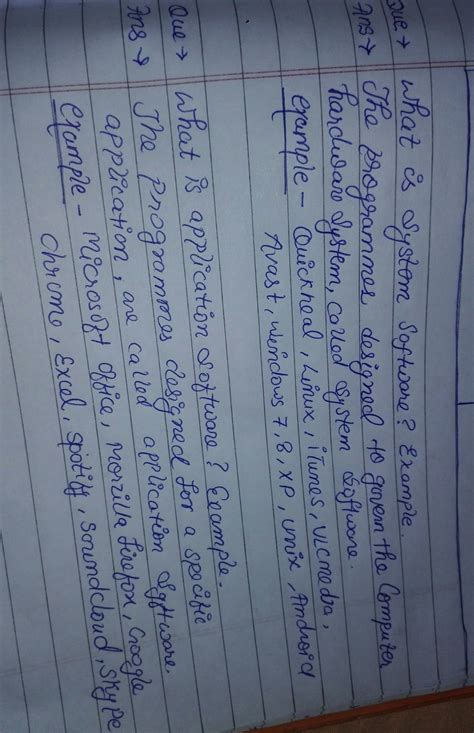 Que → What is System Software? Example.
Ans → The programmes designed to govern the Computer
hardware System, called System Software.
Example - Quickheal, Linux, iTunes, vlcmedia,
Avast, Windows 7, 8, XP, Unix, Android
Que → What is application Software? Example.
Ans → The programmes designed for a specific
application, are called application Software.
Example - Microsoft Office, Morzilla firefox, Google
chrome, Excel, Spotify, Soundcloud, Skype